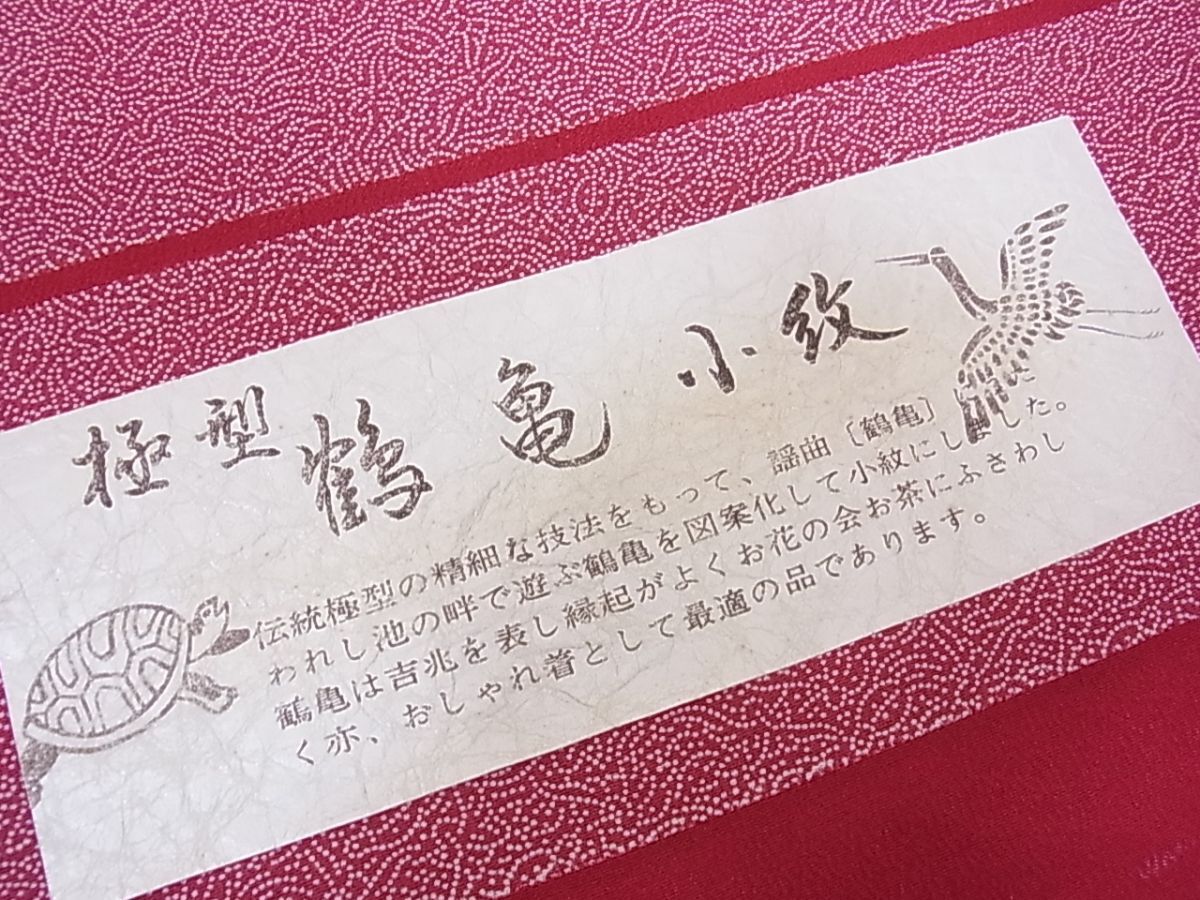 極型鶴亀小紋
伝統極型の精細な技法をもって、謡曲〔鶴亀〕に
われし池の畔で遊ぶ鶴亀を図案化して小紋にしました。
鶴亀は吉兆を表し縁起がよくお花の会お茶にふさわし
く亦、おしゃれ着として最適の品であります。